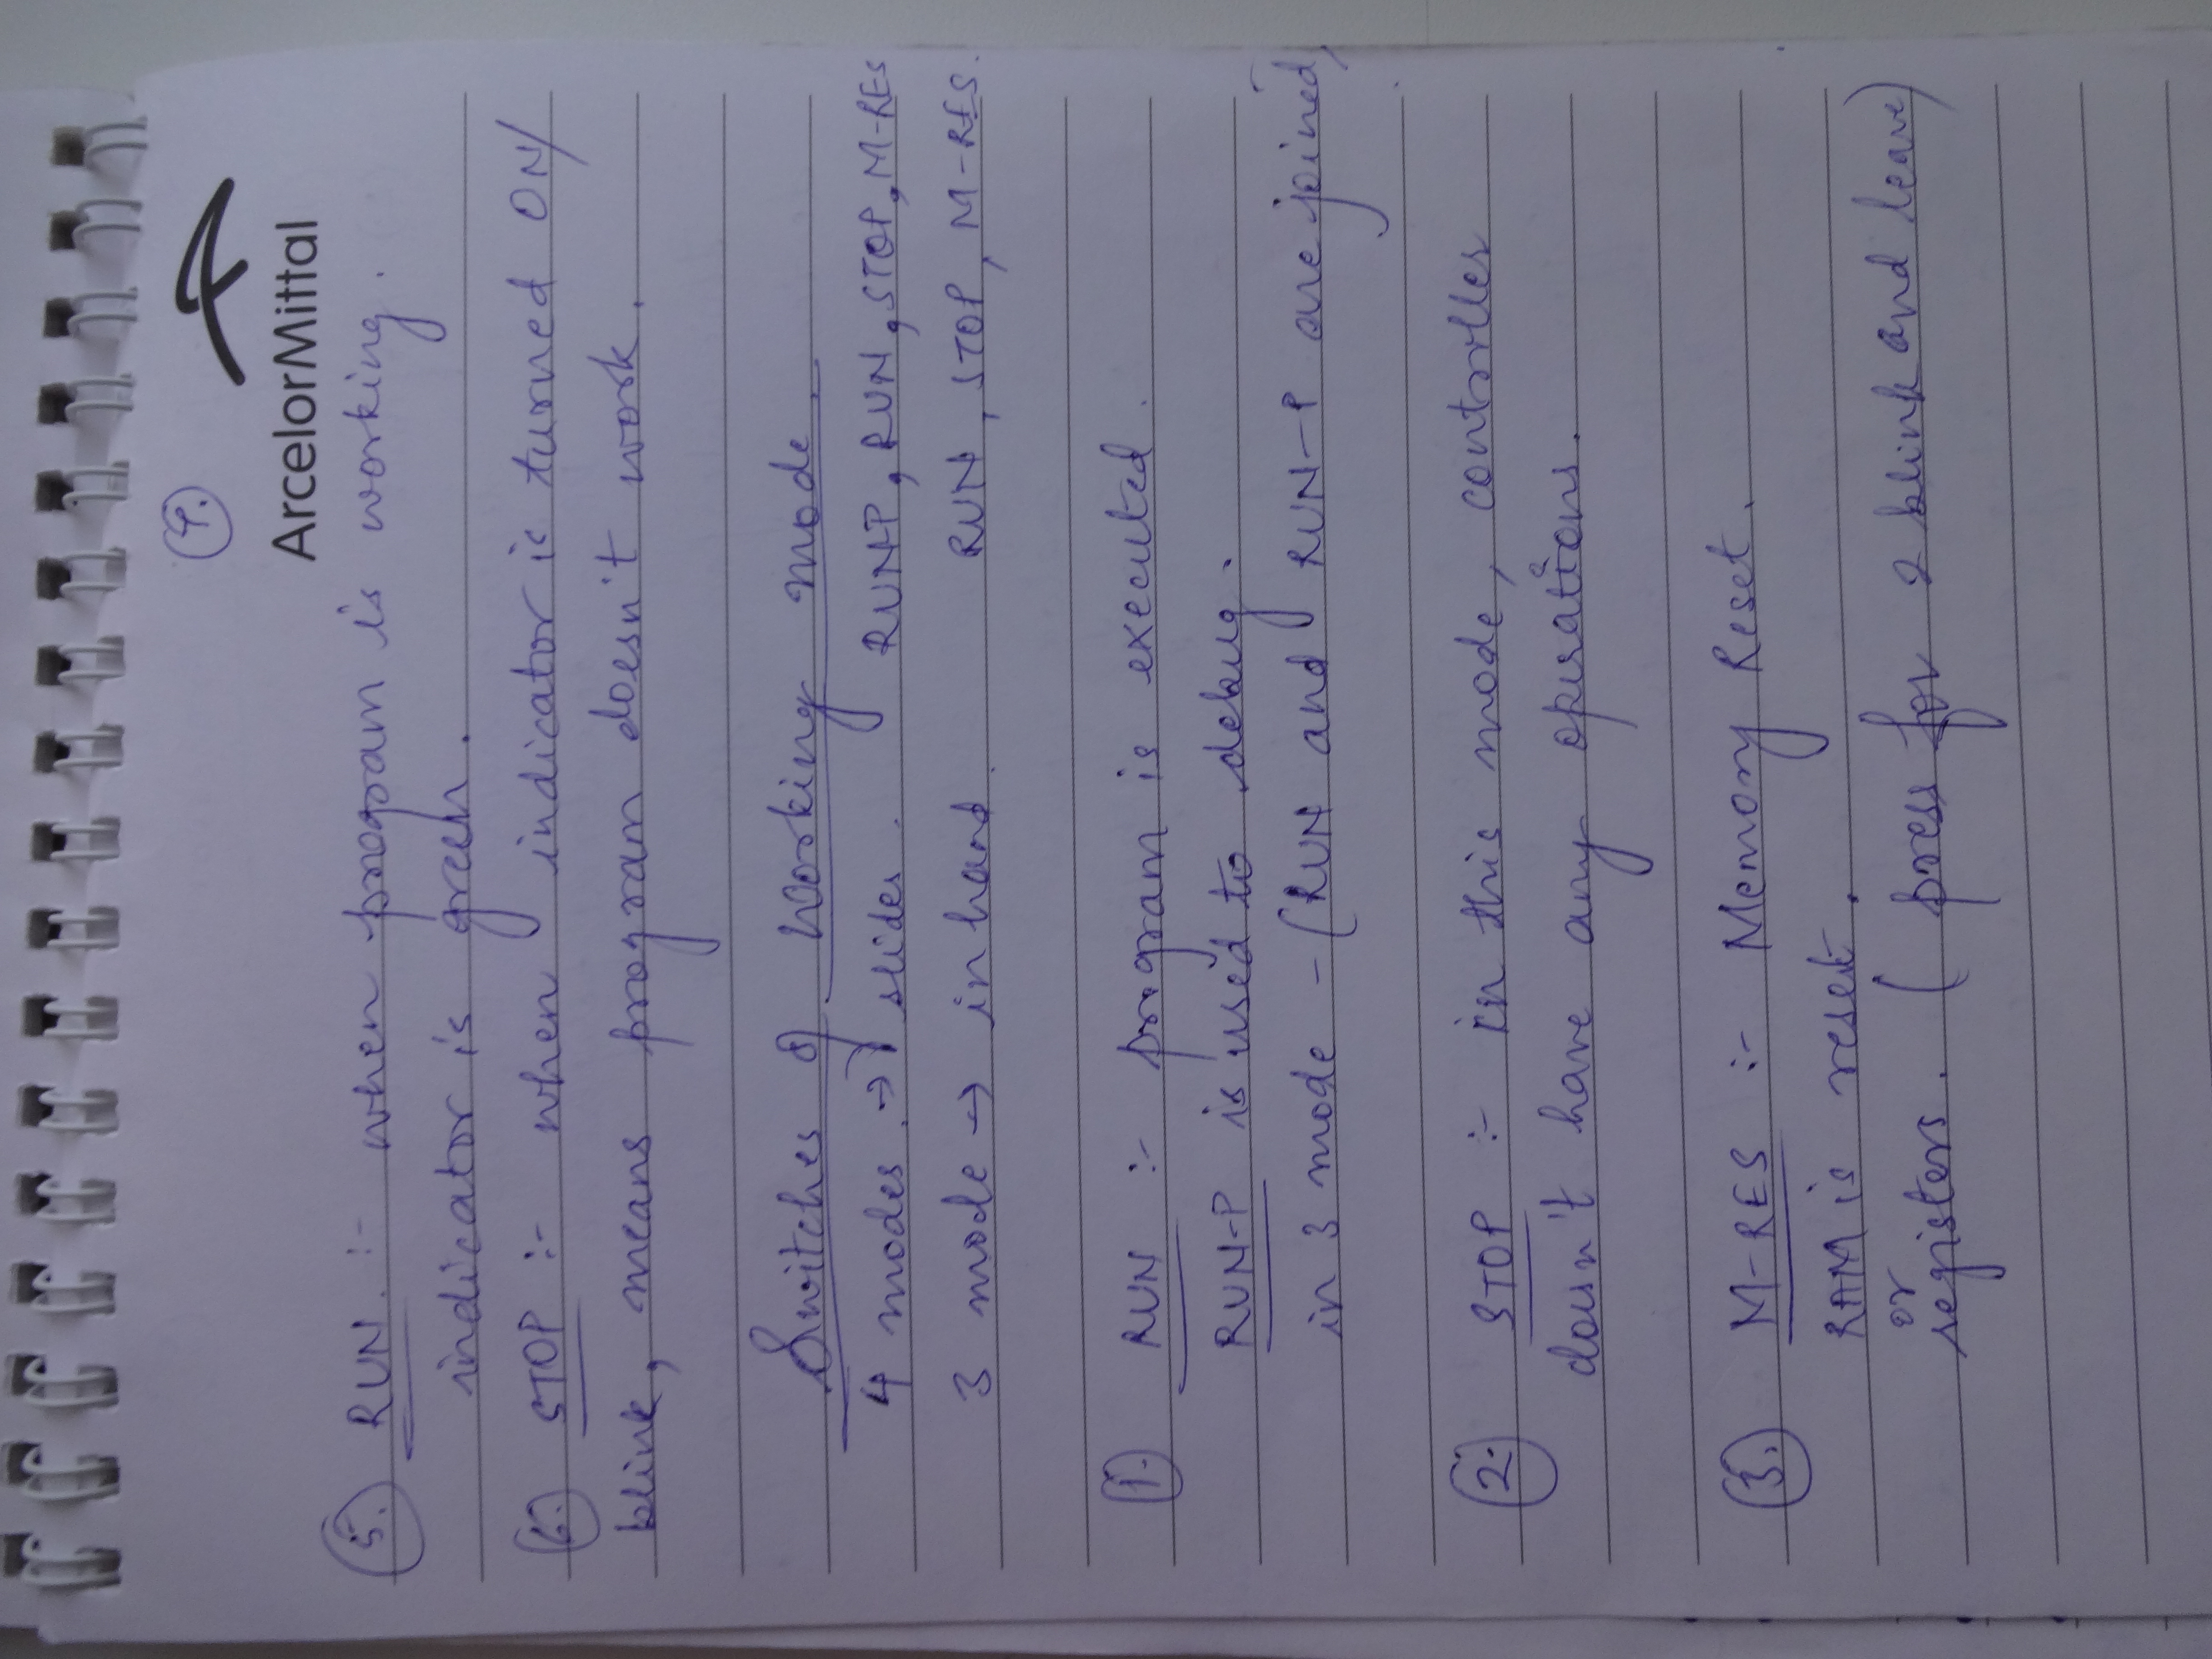 4.
ArcelorMittal
5. RUN :- when program is working.
indicator is green.
6. STOP :- when indicator is turned ON/
blink, means program doesn't work.
Switches of working mode.
4 modes. → slides. RUN-P, RUN, STOP, M-RES
3 mode → in hand RUN, STOP, M-RES.
1. RUN :- program is executed.
RUN-P is used to debug.
in 3 mode - (RUN and RUN-P are joined)
2. STOP :- in this mode, controller
doesn't have any operations.
3. M-RES :- Memory Reset.
RAM is reset.
or
registers. (press for 2 blink and leave)